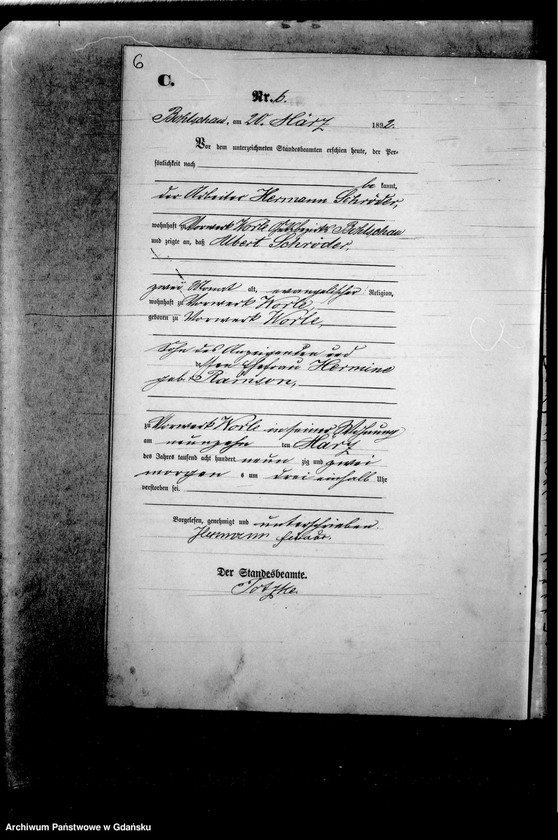 6
C.
Nr. 6.
Bohlschau, am 20. März 1892.
Vor dem unterzeichneten Standesbeamten erschien heute, der Per-
sönlichkeit nach
be kannt,
der Arbeiter Hermann Schröder,
wohnhaft zu Vorwerk Worle Gutsbezirk Bohlschau
und zeigte an, daß Albert Schröder,
zwei Monat alt, evangelischer Religion,
wohnhaft zu Vorwerk Worle,
geboren zu Vorwerk Worle,
Sohn des Anzeigenden und
Ehefrau Hermine
geb.
zu Vorwerk Worle in seiner Wohnung
am neunzehn ten März
des Jahres tausend acht hundert neun zig und zwei
morgen s um drei einhalb Uhr
verstorben sei.
Vorgelesen, genehmigt und unterschrieben
Hermann
Der Standesbeamte.
Archiwum Państwowe w Gdańsku